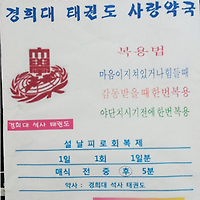 경희대 태권도 사랑약국
복용법
마음이지쳐있거나힘들때
감동받을때한번복용
야단치시기전에한번복용
경희대 석사 태권도
설날피로회복제
1일 1회 1일분
매식 전 중 후 5분
약사 : 경희대 석사 태권도